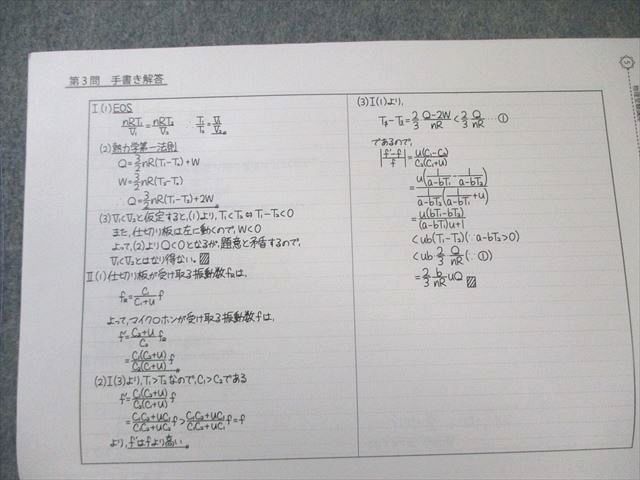 第3問 手書き解答
I(1)EOS
nRT₁/V₁=nRT₂/V₂ ∴T₁/T₂=V₁/V₂。
(2)熱力学第一法則
Q=3/2nR(T₁-T₀)+W
W=3/2nR(T₂-T₀)
∴Q=3/2nR(T₁-T₂)+2W。
(3)V₁<V₂と仮定すると、(1)より、T₁<T₂⇔T₁-T₂<0
また、仕切り板は左に動くので、W<0
よって、(2)よりQ<0となるが、題意と矛盾するので、
V₁<V₂とはなり得ない。
II(1)仕切り板が受け取る振動数fRは、
fR=C₁/(C₁+u)f
よって、マイクロホンが受け取る振動数f'は、
f'=(C₂+u)/C₂fR
=C₁(C₂+u)/C₂(C₁+u)f
(2)I(3)より、T₁>T₂なので、C₁>C₂である
f'=C₁(C₂+u)/C₂(C₁+u)f
=(C₁C₂+uC₁)/(C₁C₂+uC₂)f>(C₁C₂+uC₁)/(C₁C₂+uC₁)f=f
より、f'はfより高い。
(3)I(1)より、
T₁-T₂=2/3 (Q-2W)/nR<2/3 Q/nR…①
であるので、
|(f'-f)/f|=u(C₁-C₂)/C₂(C₁+u)
=u(1/(a-bT₁)-1/(a-bT₂))/(1/(a-bT₂)(1/(a-bT₁)+u))
=u(bT₁-bT₂)/((a-bT₁)u+1)
<ub(T₁-T₂)(∵a-bT₂>0)
<ub 2/3 Q/nR(∵①)
=2/3 b/nR uQ